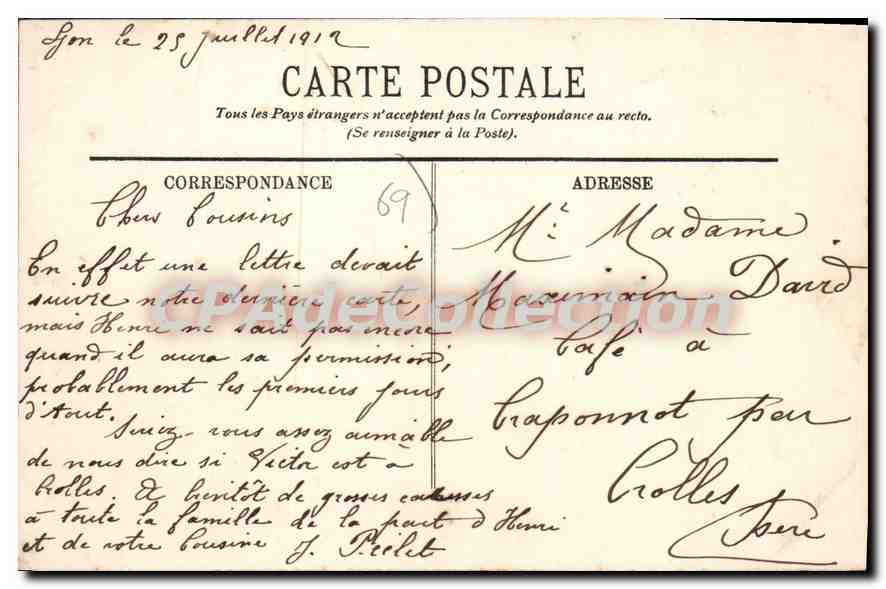 Lyon le 25 Juillet 1912
CARTE POSTALE
Tous les Pays étrangers n'acceptent pas la Correspondance au recto.
(Se renseigner à la Poste).
CORRESPONDANCE
69
Chers Cousins
En effet une lettre devait
suivre notre dernière carte,
mais Henri ne sait pas encore
quand il aura sa permission,
probablement les premiers jours
d'Aout.
Seriez-vous assez aimable
de nous dire si Victor est à
Crolles. A bientôt de grosses caresses
à toute la famille de la part d'Henri
et de votre Cousine J. Prelet
ADRESSE
Mr: Madame
Maximain David
Café à
Craponnot par
Crolles
Isère
CPADeCollection